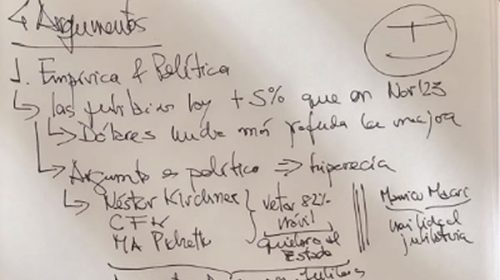 4 Argumentos
1. Empírica & Política
las jubilac hoy +5% que en Nov'23
Dólares mucho más profunda la mejora
Argumento es político ⇒ hipocrecía
Néstor Kirchner
CFK
MA Pichetto
vetar 82%
móvil
quiebra el
Estado
Mauricio Macri
movilidad
jubilatoria